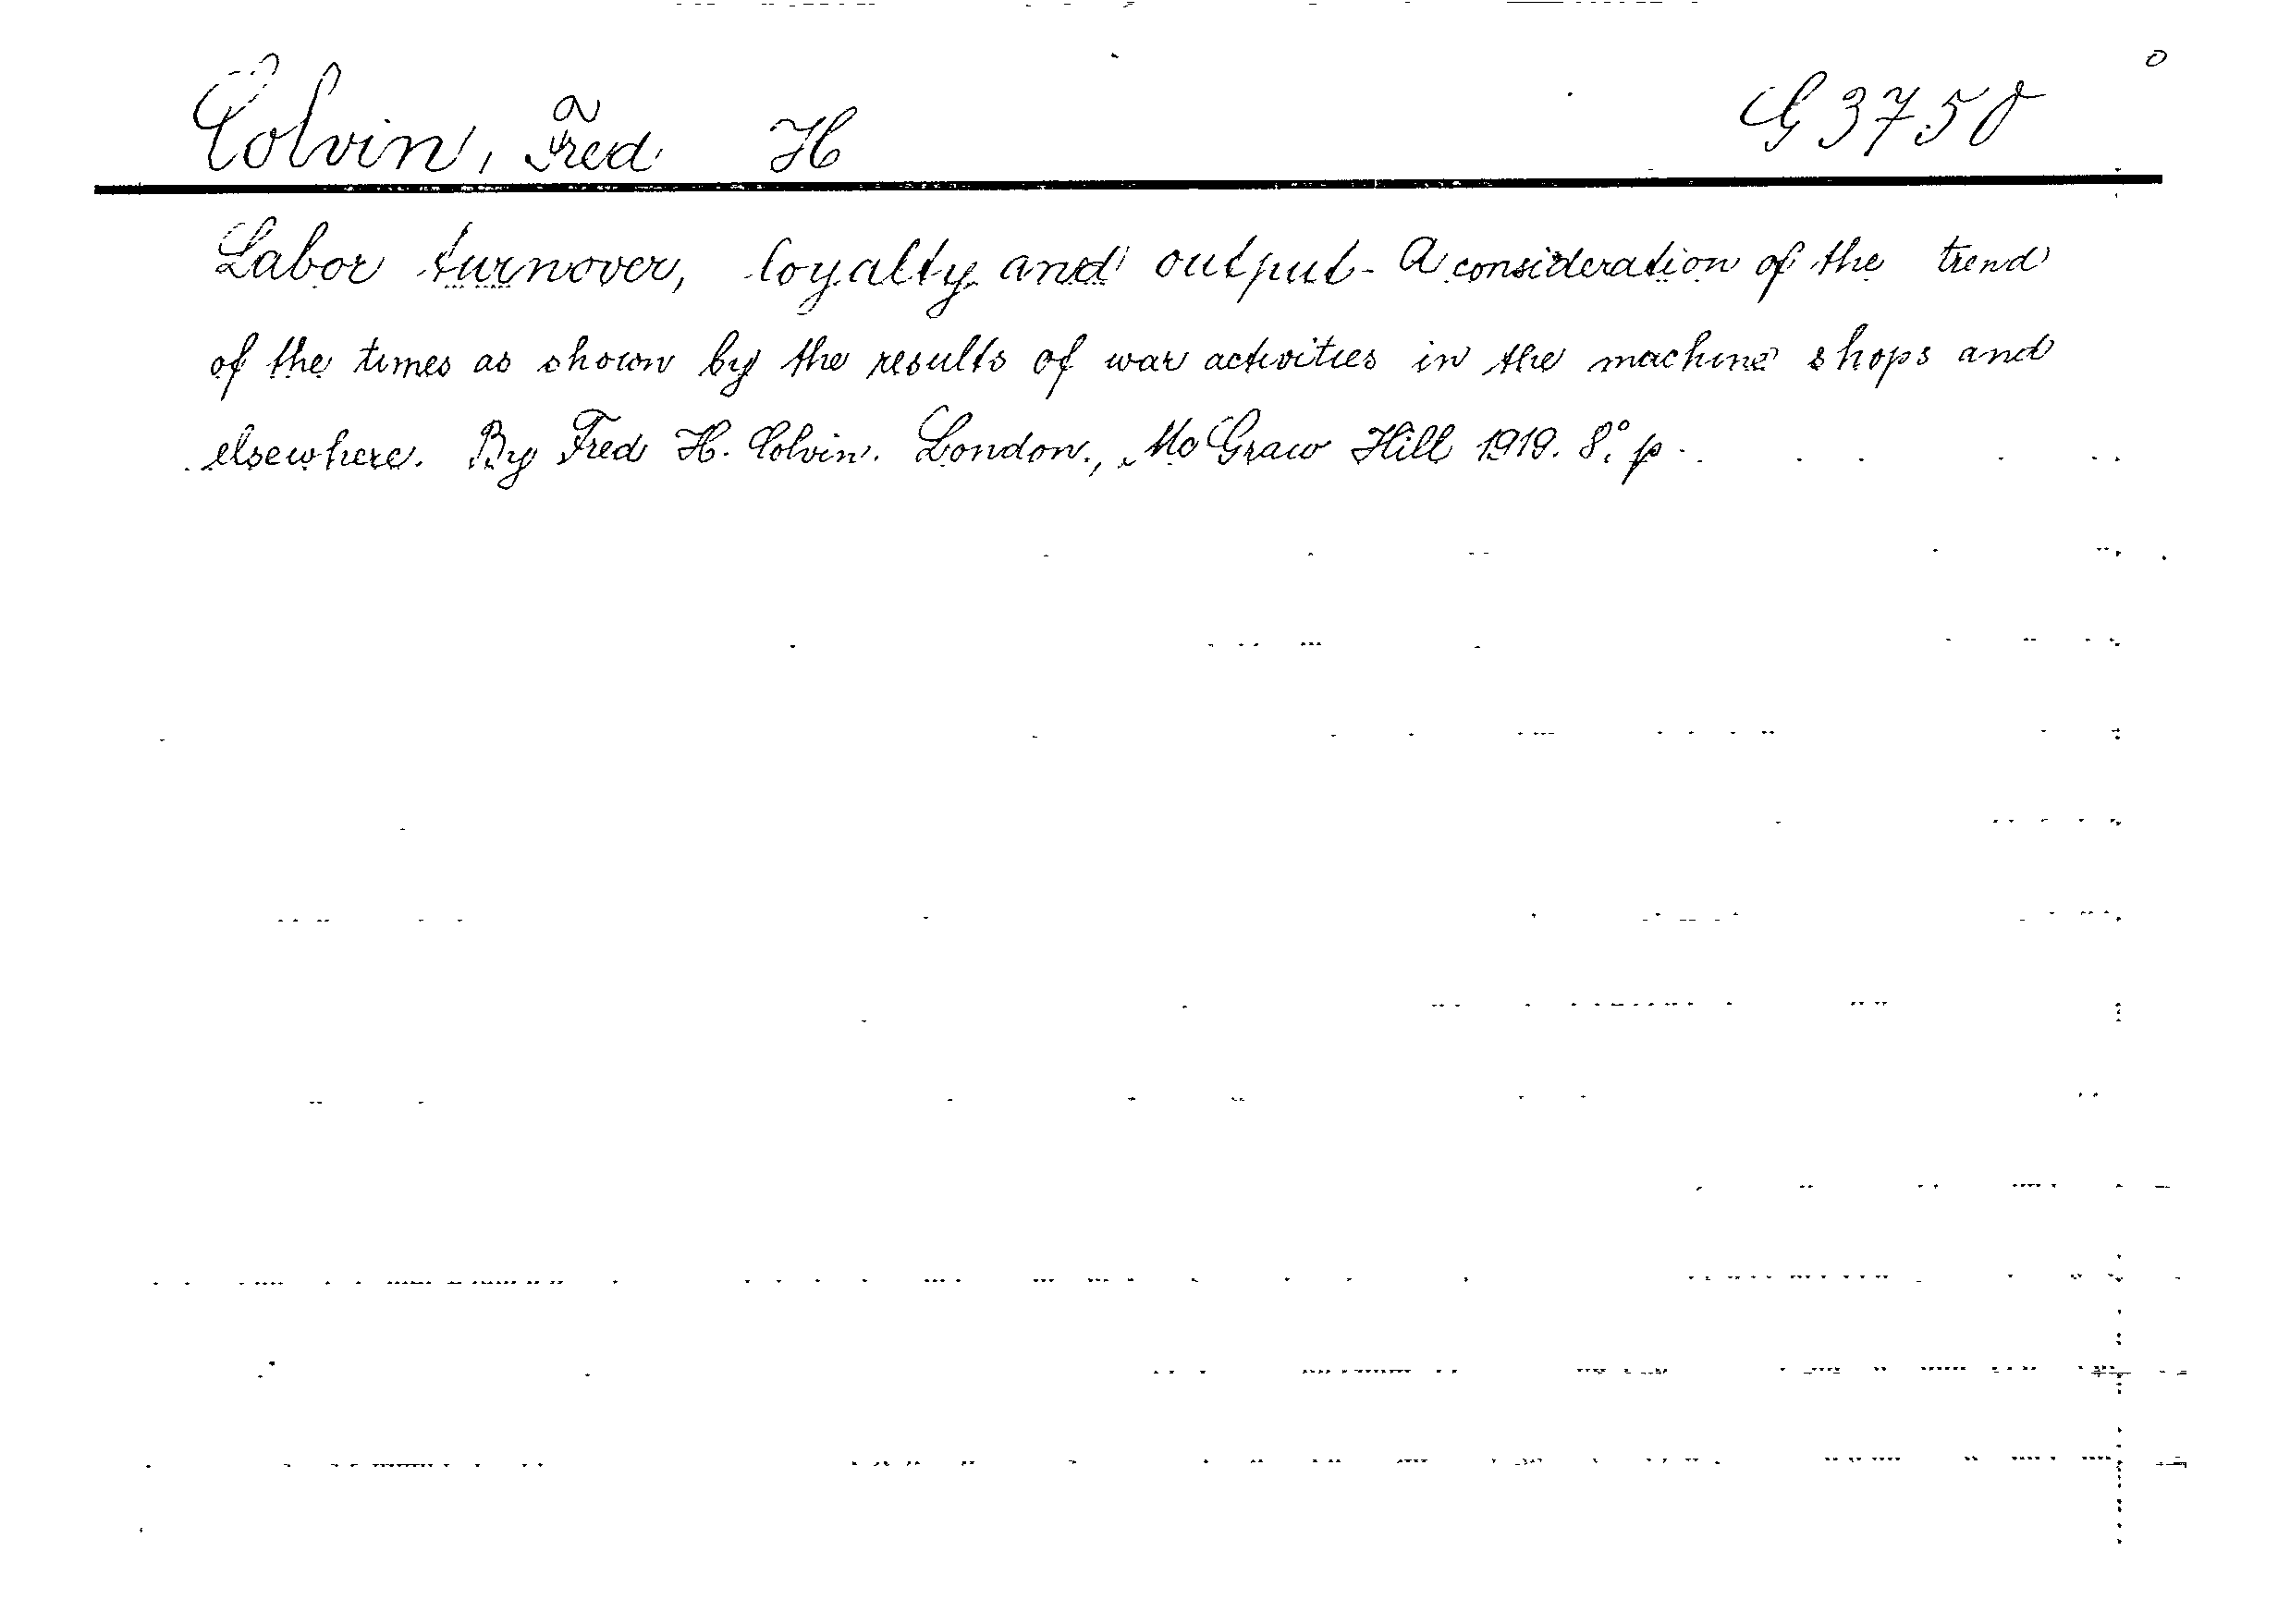 Colvin, Fred H G 3750
Labor turnover, loyalty and output - A consideration of the trend
of the times as shown by the results of war activities in the machine shops and
elsewhere. By Fred H. Colvin. London., Mc Graw Hill 1919. 8° p.